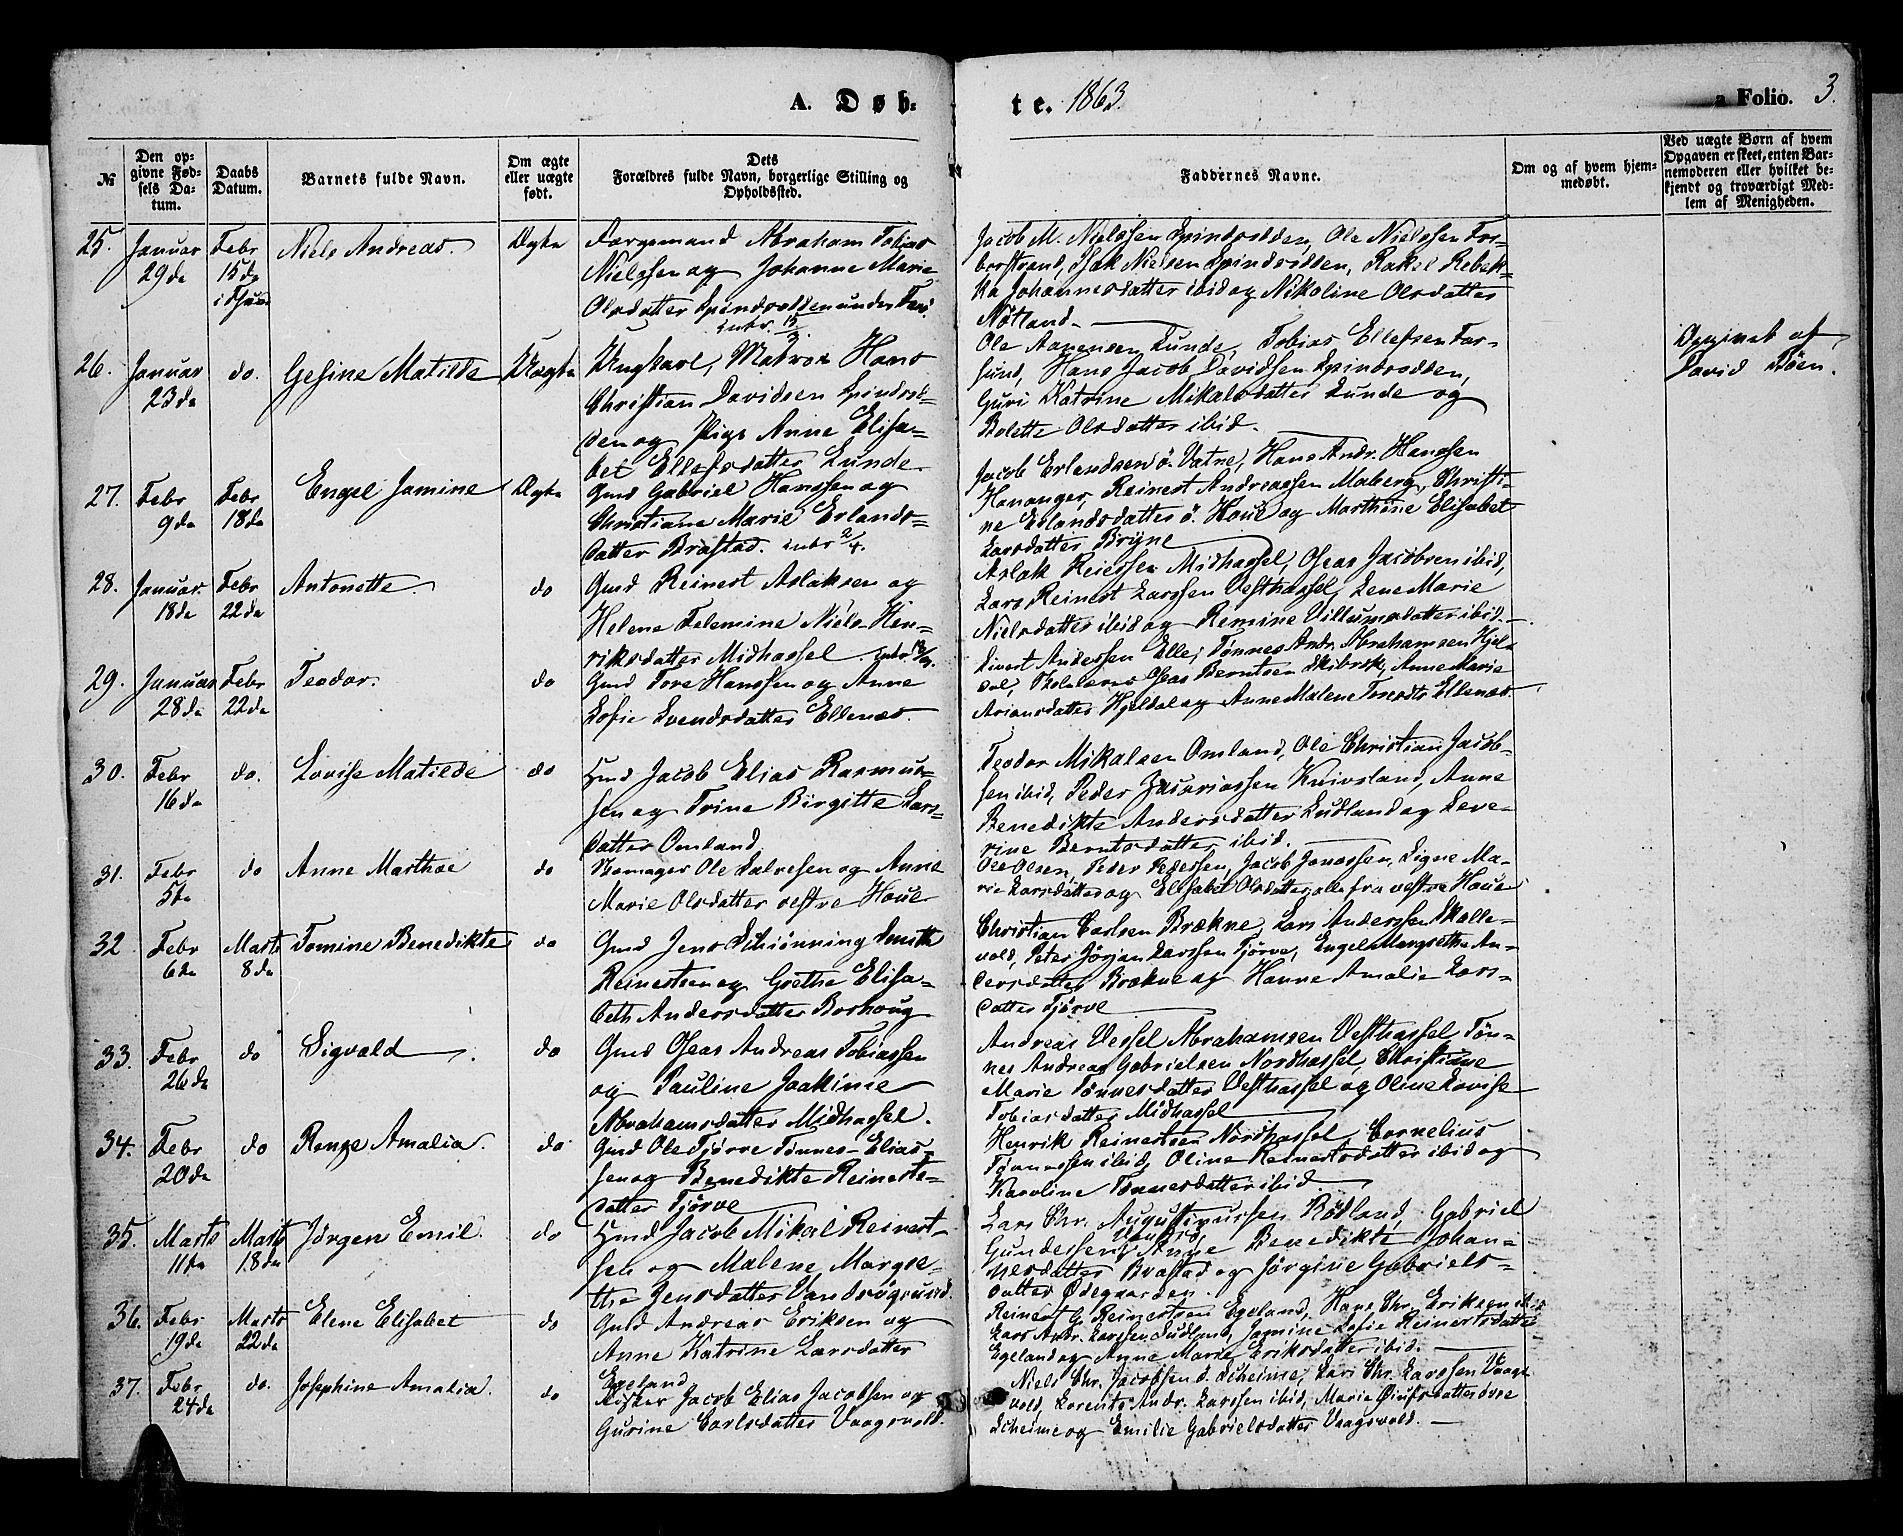 A. Døb-
te. 1863.
a Folio. 3.
№
Den op-
givne Fød-
sels Da-
tum.
Daabs
Datum.
Barnets fulde Navn.
Om ægte
eller uægte
født.
Dets
Forældres fulde Navn, borgerlige Stilling og
Opholdssted.
Faddernes Navne.
Om og af hvem hjem-
medøbt.
Ved uægte Børn af hvem
Opgaven er skeet, enten Bar-
nemoderen eller hvilket be-
kjendt og troværdigt Med-
lem af Menigheden.
25.
Januar
29de
Febr
15de
Niels Andreas.
Ægte
Færgemand Abraham Tobias
Nielssen og Johanne Marie
Olsdatter Spindsodden under
Jacob M. Nielssen Spindsodden, Ole Nielssen Far-
Isak Nielsen Spindsodden, Rakel Rebek-
ka Johannesdatter ibid og Nikoline Olsdatter
26.
Januar
23de
do.
Gesine Matilde
Uægte
Ungkarl, Matros Hans
Christian Davidsen Spindsod-
den og Pige Anne Elisa-
bet Ellefsdatter Lunde
Ole Aanensen Lunde, Tobias Ellefsen Far-
sund, Hans Jacob Davidsen Spindsodden,
Guri Katrine Mikalsdatter Lunde og
Bolette Olsdatter ibid.
Opgivet af
David
27.
Febr
9de
Febr
18de
Engel Jamine
Ægte
Gmd Gabriel Hanssen og
Christiane Marie Erlands-
datter Brastad. intr 2/4.
Jacob Erlandsen ø. Vatne, Hans Andr. Hanssen
Hananger, Reinert Andreassen Maberg, Christi-
ne Erlandsdatter ø. Houe og Marthine Elisabet
Larsdatter Bryne
28.
Januar
18de
Febr
22de
Antonette.
do
Gmd Reinert Aslaksen og
Helene Telemine Niels Hen-
riksdatter Midhassel.
Aslak Reierssen Midhassel, Oseas Jacobsen ibid,
Lars Reinert Larssen Vesthassel, Lene Marie
Nielsdatter ibid og Remine Villumsdatter ibid.
29.
Januar
28de
Febr
22de
Teodor.
do
Gmd Tore Hanssen og Anne
Sofie Svendsdatter Ellenæs.
Sivert Anderssen Elle, Tønnes Andr. Abrahamsen Hjel-
dal, Skolelærer Oseas Berntsen Skibrek, Anne Marie
Ariansdatter Hjeldal og Anne Malene Toresdtr Ellenæs
30.
Febr
16de
do.
Lovise Matilde
do
Hmd Jacob Elias Rasmus-
sen og Trine Birgitte Lars-
datter Omland
Teodor Mikalsen Omland, Ole Christian Jacob-
sen ibid, Peder Zakariassen Kvivsland, Anne
Benedikte Andersdatter Sudland og Seve-
rine Berntsdatter ibid.
31.
Febr
5te
do
Anne Marthee
do
Skomager Ole Salvesen og Anne
Marie Olsdatter vestre Houe
Ole Olsen, Peder Pederssen, Jacob Jonassen, Signe Ma-
rie Larsdatter og Elisabet Olsdatter, alle fra vestre Houe
32
Febr
6te
Marts
8de
Tomine Benedikte
do
Gmd Jens Schiønning Smith
Reinertsen og Grethe Elisa-
beth Andersdatter Borhoug
Christian Carlsen Brækne, Lars Anderssen Skolle-
vold, Peter Jørgen Larssen Tjørve, Engel Margrethe An-
dersdatter Brækne og Hanne Amalie Lars-
datter Tjørve
33.
Febr
26de
do
Sigvald
do
Gmd Oseas Andreas Tobiassen
og Pauline Joakime
Abrahamsdatter Midhassel.
Andreas Vessel Abrahamsen Vesthassel, Tøn-
nes Andreas Gabrielsen Nordhassel, Christiane
Marie Tønnesdatter Vesthassel og Oline Lovise
Tobiasdatter Midhassel
34.
Febr
20de
do
Renze Amalia.
do
Gmd Ole Tjørve Tønnes-Elias-
sen og Benedikte Reinerts-
datter Tjørve
Henrik Reinertsen Nordhassel, Cornelius
Tønnessen ibid, Oline Reinertsdatter ibid og
Karoline Tønnesdatter ibid.
35.
Marts
11te
Marts
18de
Jørgen Emil.
do
Hmd Jacob Mikal Reinert-
sen og Malene Margre-
the Jensdatter Vandsøgrund.
Lars Chr. Augustinussen Rødland, Gabriel
Gundersen Anne Benedikte Johan-
nesdatter Brastad og Jørgine Gabriels-
datter Ødegaarden.
36.
Febr
19de
Marts
22de
Elene Elisabet
do
Gmd Andreas Eriksen og
Anne Katrine Larsdatter
Egeland
Reinert G. Reinertsen Egeland, Hans Chr. Eriksen ibid
Lars Andr. Larssen Sudland, Jamine Sofie Reinertsdatter
Egeland og Anne Marie Eriksdatter ibid.
37.
Febr
24de
do.
Josephine Amalia.
do
Fisker Jacob Elias Jacobsen og
Gurine Carlsdatter Vaagsvold.
Niels Chr. Jacobsen d. Scheime, Lars Chr. Larssen Vaags-
vold, Lorents Andr. Larssen ibid, Marie
Scheime og Emilie Gabrielsdatter Vaagsvold.